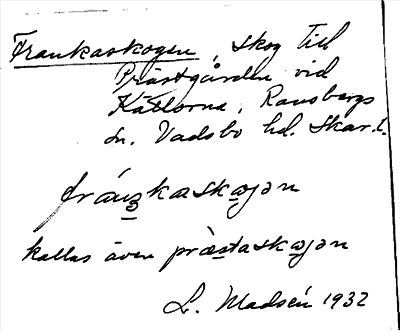 Frankaskogen, skog till
Prästgården vid
Källorna, Ransbergs
sn. Vadsbo hd. Skar.l.
fránskaskꞷgən
kallas även præstaskꞷgən
L. Madsén 1932